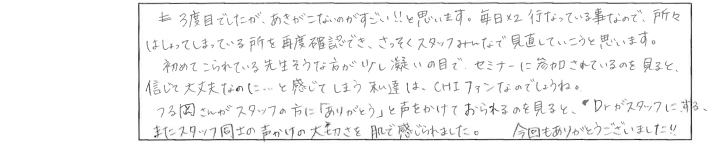 3度目でしたが、あきがこないのがすごい!!と思います。毎日×2 行なっている事なので、所々
はしょってしまっている所を再度確認でき、さっそくスタッフみんなで見直していこうと思います。
初めてこられている先生そうな方が少し凝いの目で、セミナーに参加されているのを見ると、
信じて大丈夫なのに…と感じてしまう私達は、CHIファンなのでしょうね。
つる岡さんがスタッフの方に「ありがとう」と声をかけておられるのを見ると、Drがスタッフにする、
またスタッフ同士の声かけの大切さを肌で感じられました。 今回もありがとうございました!!